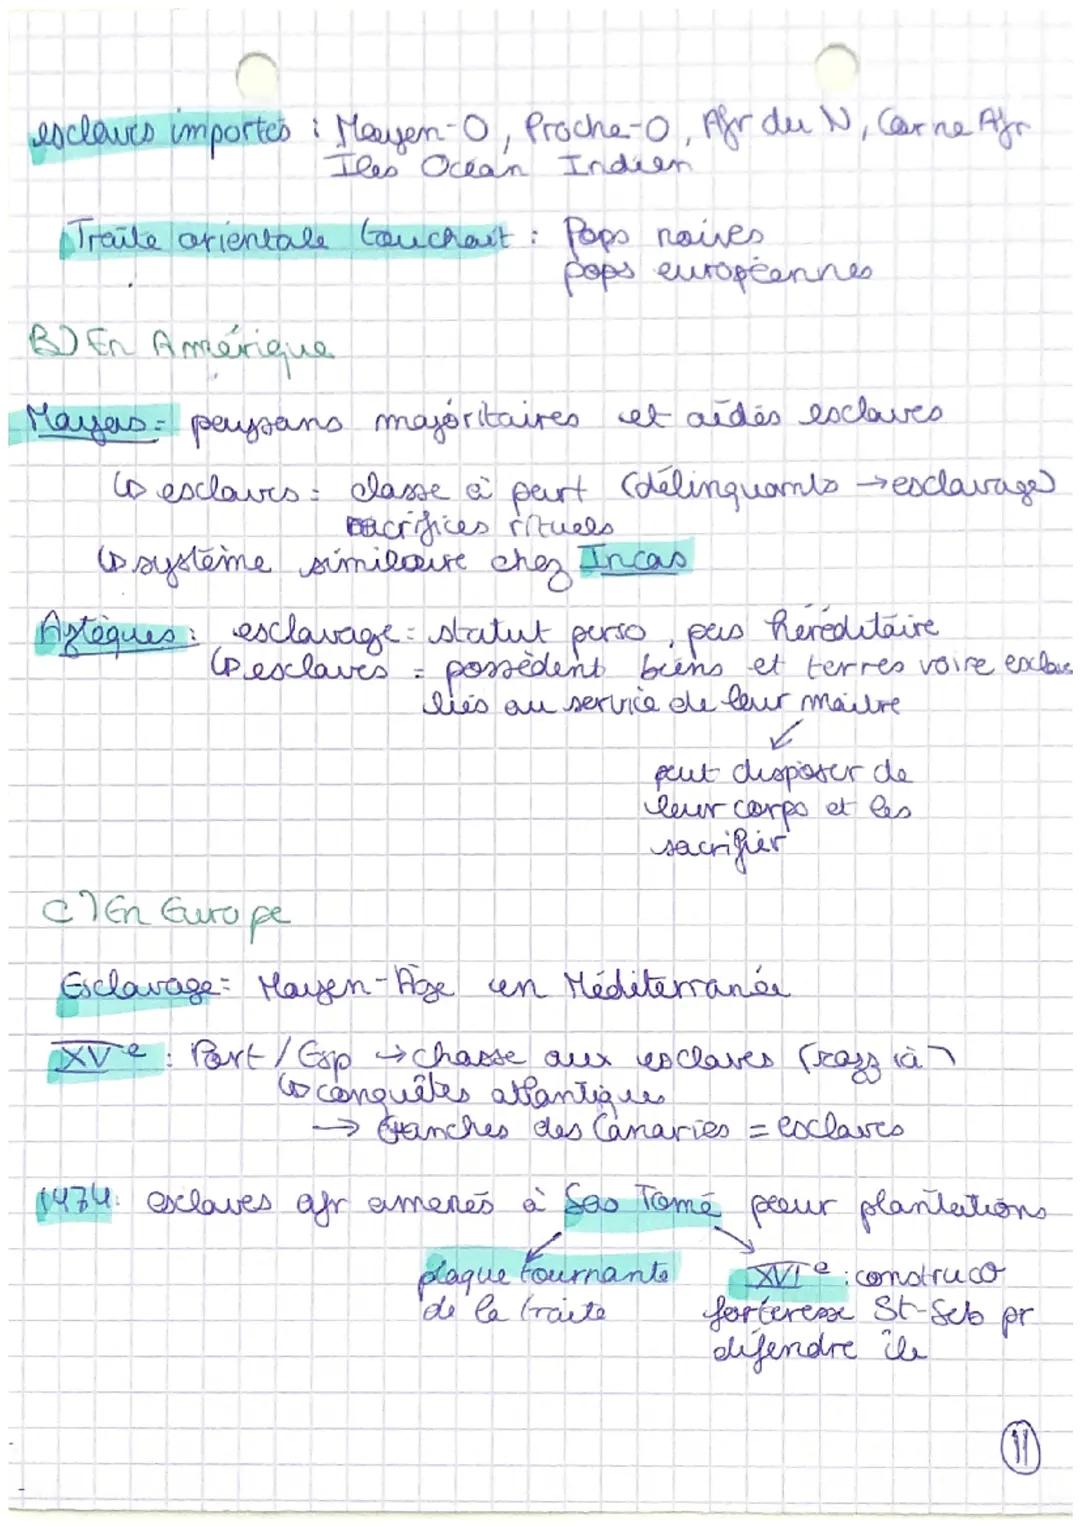 esclaves importés : Moyen-O, Proche-O, Afr du N, Corne Afr
Iles Océan Indien
Traite orientale touchait : Pops noires
pops européennes
B) En Amérique
Mayas = paysans majoritaires et aidés esclaves
↳ esclaves = classe à part (délinquants → esclavage)
sacrifices rituels
↳ système similaire chez Incas
Aztèques : esclavage = statut perso, pas héréditaire
↳ esclaves = possèdent biens et terres voire esclaves
liés au service de leur maître
peut disposer de
leur corps et les
sacrifier
C) En Europe
Esclavage = Moyen-Âge en Méditerranée
XVe : Port/Esp → chasse aux esclaves (razzia)
↳ conquêtes atlantiques
→ Guanches des Canaries = esclaves
1474 : esclaves afr amenés à Sao Tomé pour plantations
plaque tournante
de la traite
XVIe : construco
forteresse St-Seb pr
défendre île
11